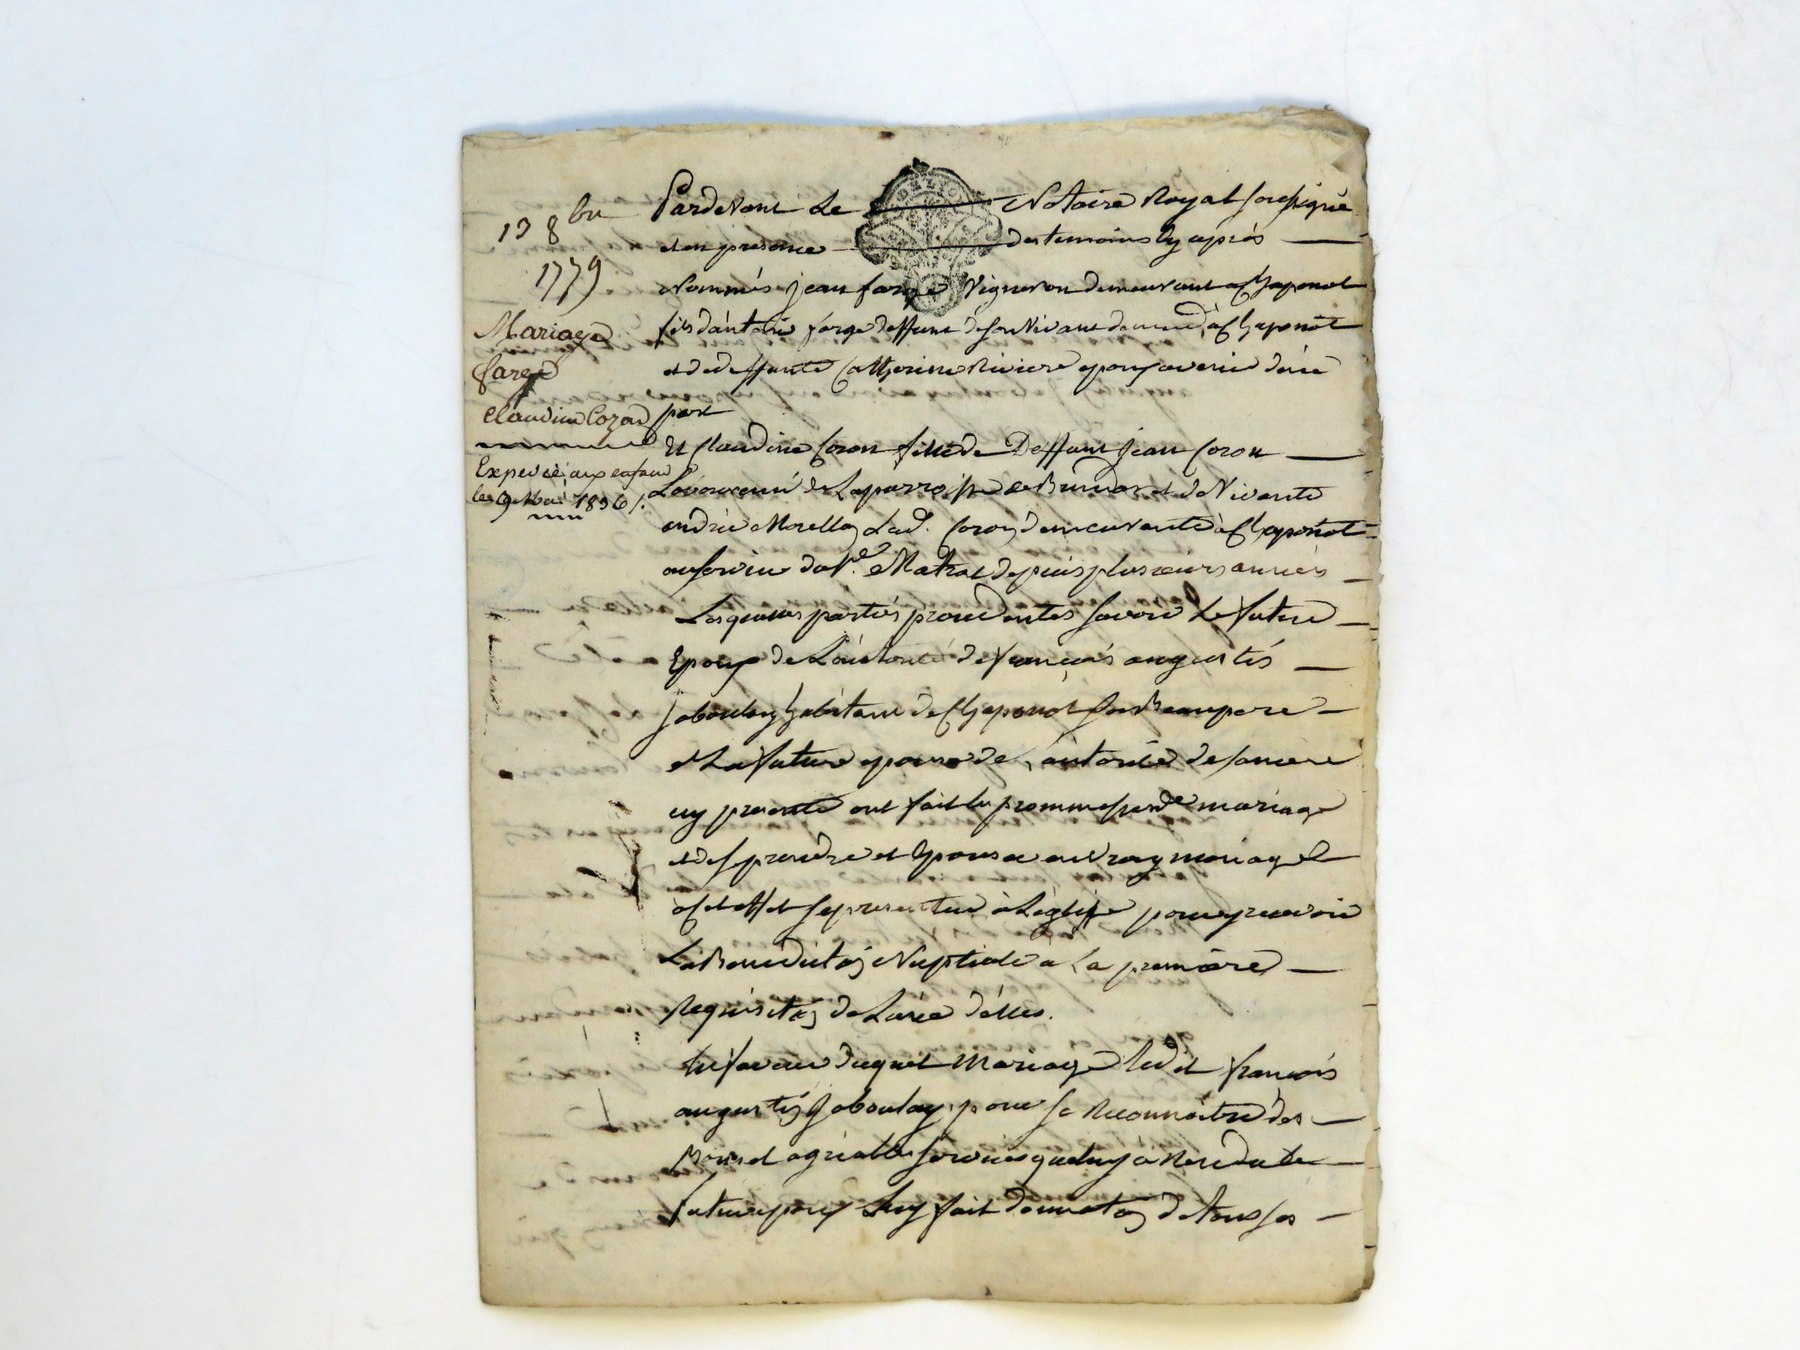 13 8bre
1779
Mariage
farge
Claudine Coron
Expediée aux enfans
le 9 Mai 1836 /.
Pardevant Le Notaire Royal soussigné
et en presence des temoins cy après
Nommés jean farge Vigneron demeurant a Chaponot
fils d'antoine farge deffunt de son Vivant demeurt à Chaponot
et de deffunte Catherine Riviere epoux avenir d'une
part
Et Claudine Coron fille de Deffunt jean Coron
Laboureur de La parroisse de Brindas et de Vivante
andrée Morellon Lad. Coron demeurante à Chaponot
au service de Matrat depuis plusieurs années
Lesquelles parties procedentes savoir Le futur
Epoux de L'autorité de françois augustin
jaboulay habitant de Chaponot son Beaupere
et La future epouse de L'autorité de sa mere
cy presente ont fait les promesses de mariage
et de se prendre et Epouser en Vray mariage
a cet effet se presenter à L'église pour y recevoir
La Benediction Nuptiale a La premiere
Requisition de L'une d'elles.
En faveur duquel Mariage ledit françois
augustin jaboulay pour se Reconnoitre des
Bons et agreables services que luy a Rendu le
futur epoux luy fait donnation de tous ses